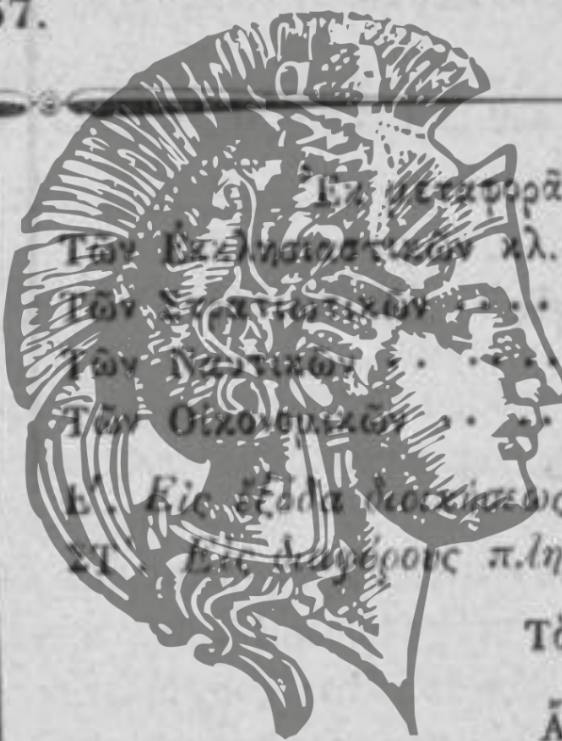 57.
Ἐκ μεταφορᾶ
Τῶν Ἐκκλησιαστικῶν κλ.
Τῶν Στρατιωτικῶν
Τῶν Ναυτικῶν
Τῶν Οἰκονομικῶν
Ε'. Εἰς ἔξοδα διοικήσεως
ΣΤ'. Εἰς διαφόρους πλη
Τὸ